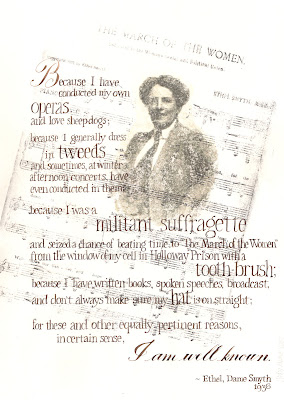 THE MARCH OF THE WOMEN.
ETHEL SMYTH, MUS. DOC.
Because I have
conducted my own
operas,
and love sheepdogs;
because I generally dress
in tweeds
and sometimes, at winter
afternoon concerts, have
even conducted in them;
because I was a
militant suffragette
and seized a chance of beating time to "The March of the Women"
from the window of my cell in Holloway Prison with a
tooth-brush;
because I have written books, spoken speeches, broadcast,
and don't always make sure my hat is on straight;
for these and other equally pertinent reasons,
in certain sense,
I am well known.
~ Ethel, Dame Smyth
1938